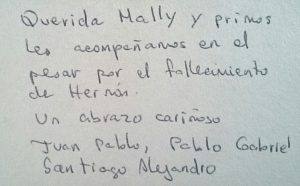 Querida Mally y primos
Les acompañamos en el
pesar por el fallecimiento
de Hernán.
Un abrazo cariñoso
Juan Pablo, Pablo Gabriel
Santiago Alejandro